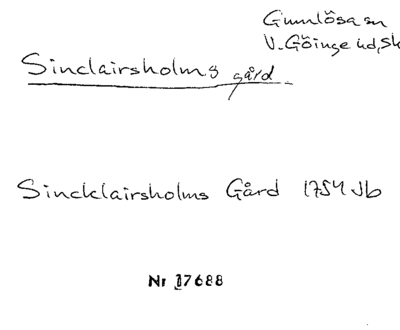 Gumlösa sn
V. Göinge hd, Sk
Sinclairsholms gård
Sincklairsholms Gård 1754 Jb
Nr 17688